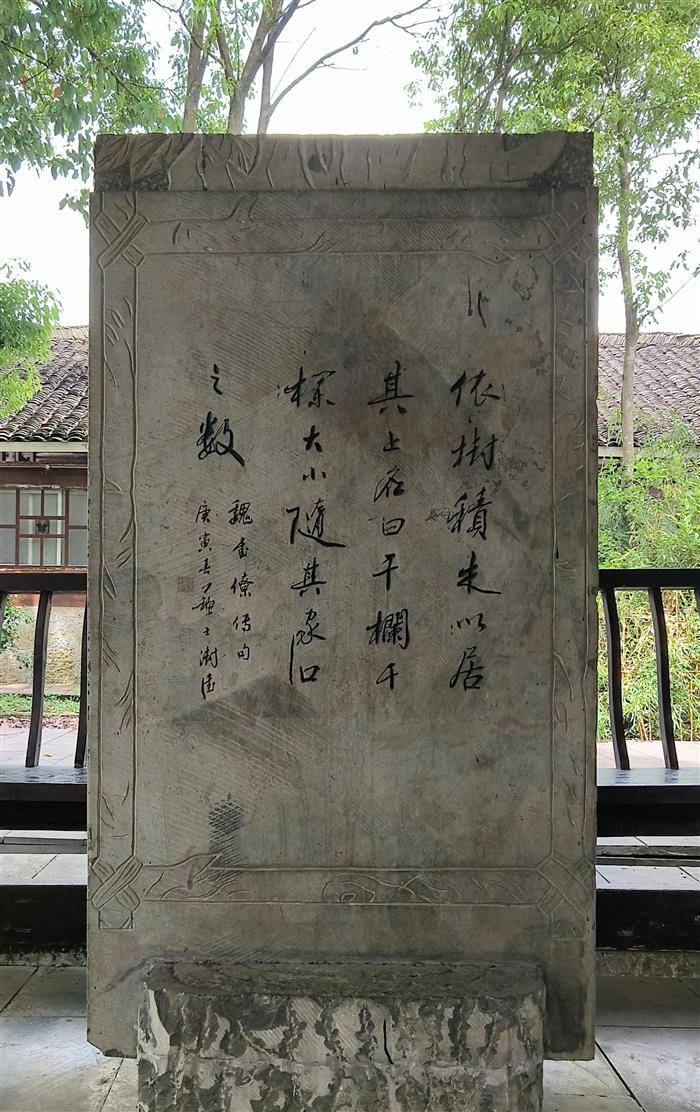 依樹積木以居
其上名曰干欄干
欄大小隨其家口
之數
魏書僚傳句
庚寅春